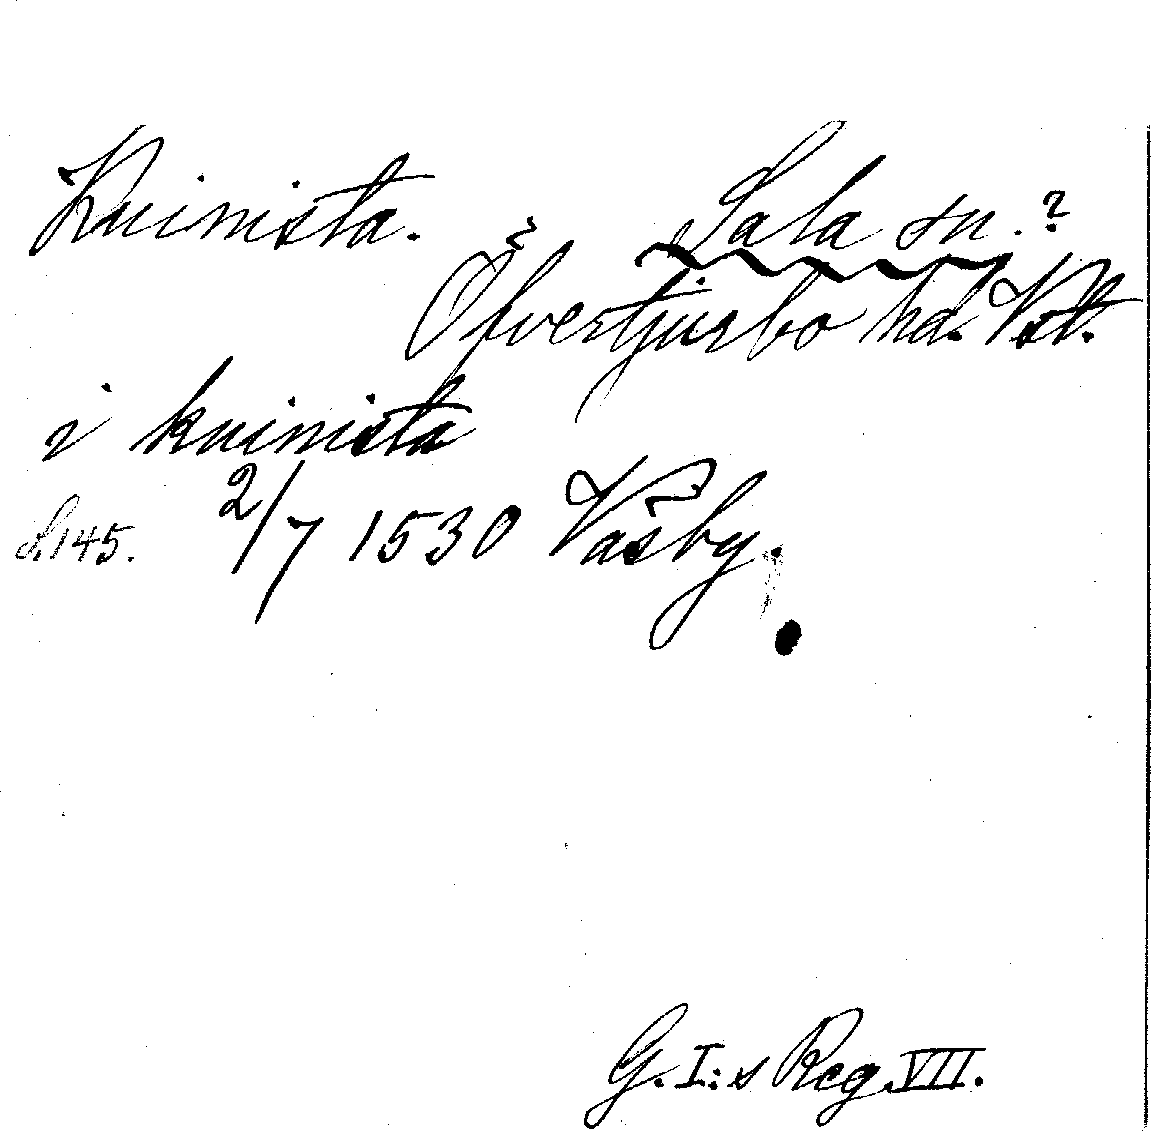 Kuinista. Sala sn.?
Öfvertjurbo hd. Vstl.
i kuinista
S. 145. 2/7 1530 Väsby.
G. I:s Reg. VII.